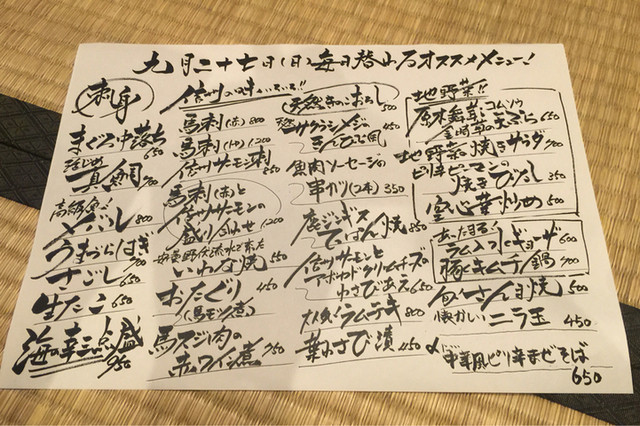 九月二十七日(日)毎日登山部オススメメニュー!
刺身
まぐろ中落ち 650
活〆 真鯛 700
高級魚!!
メバル 800
うまづらはぎ 700
さごし 650
生たこ 650
海の幸三点盛 950
信州の味
馬刺(赤) 800
馬刺(トロ) 1,200
信州サーモン刺 850
馬刺(赤)と
信州サーモンの
盛り合わせ 1,200
安曇野伏流水で育った
いわな焼 550
おたぐり 450
(馬モツ煮)
馬スジ肉の
赤ワイン煮 750
天然きのこおろし 500
サクラシメジ
きんぴら風 450
魚肉ソーセージの
串カツ(2本) 350
鹿ジンギス
てっぱん焼 850
信州サーモンと
アボカドクリームチーズの
わさびあえ 650
ラムステーキ 800
葉わさび漬 450
地野菜!!
原木舞茸 コムソウ
天ぷら 650
地野菜焼きサラダ 700
ピリ辛ピーマンの
焼きびたし 350
空心菜炒め 500
あったまる!
ラム入り水ギョーザ 600
豚キムチ鍋 700
旬!さんま焼 500
懐かしいニラ玉 450
中華風ピリ辛まぜそば
650